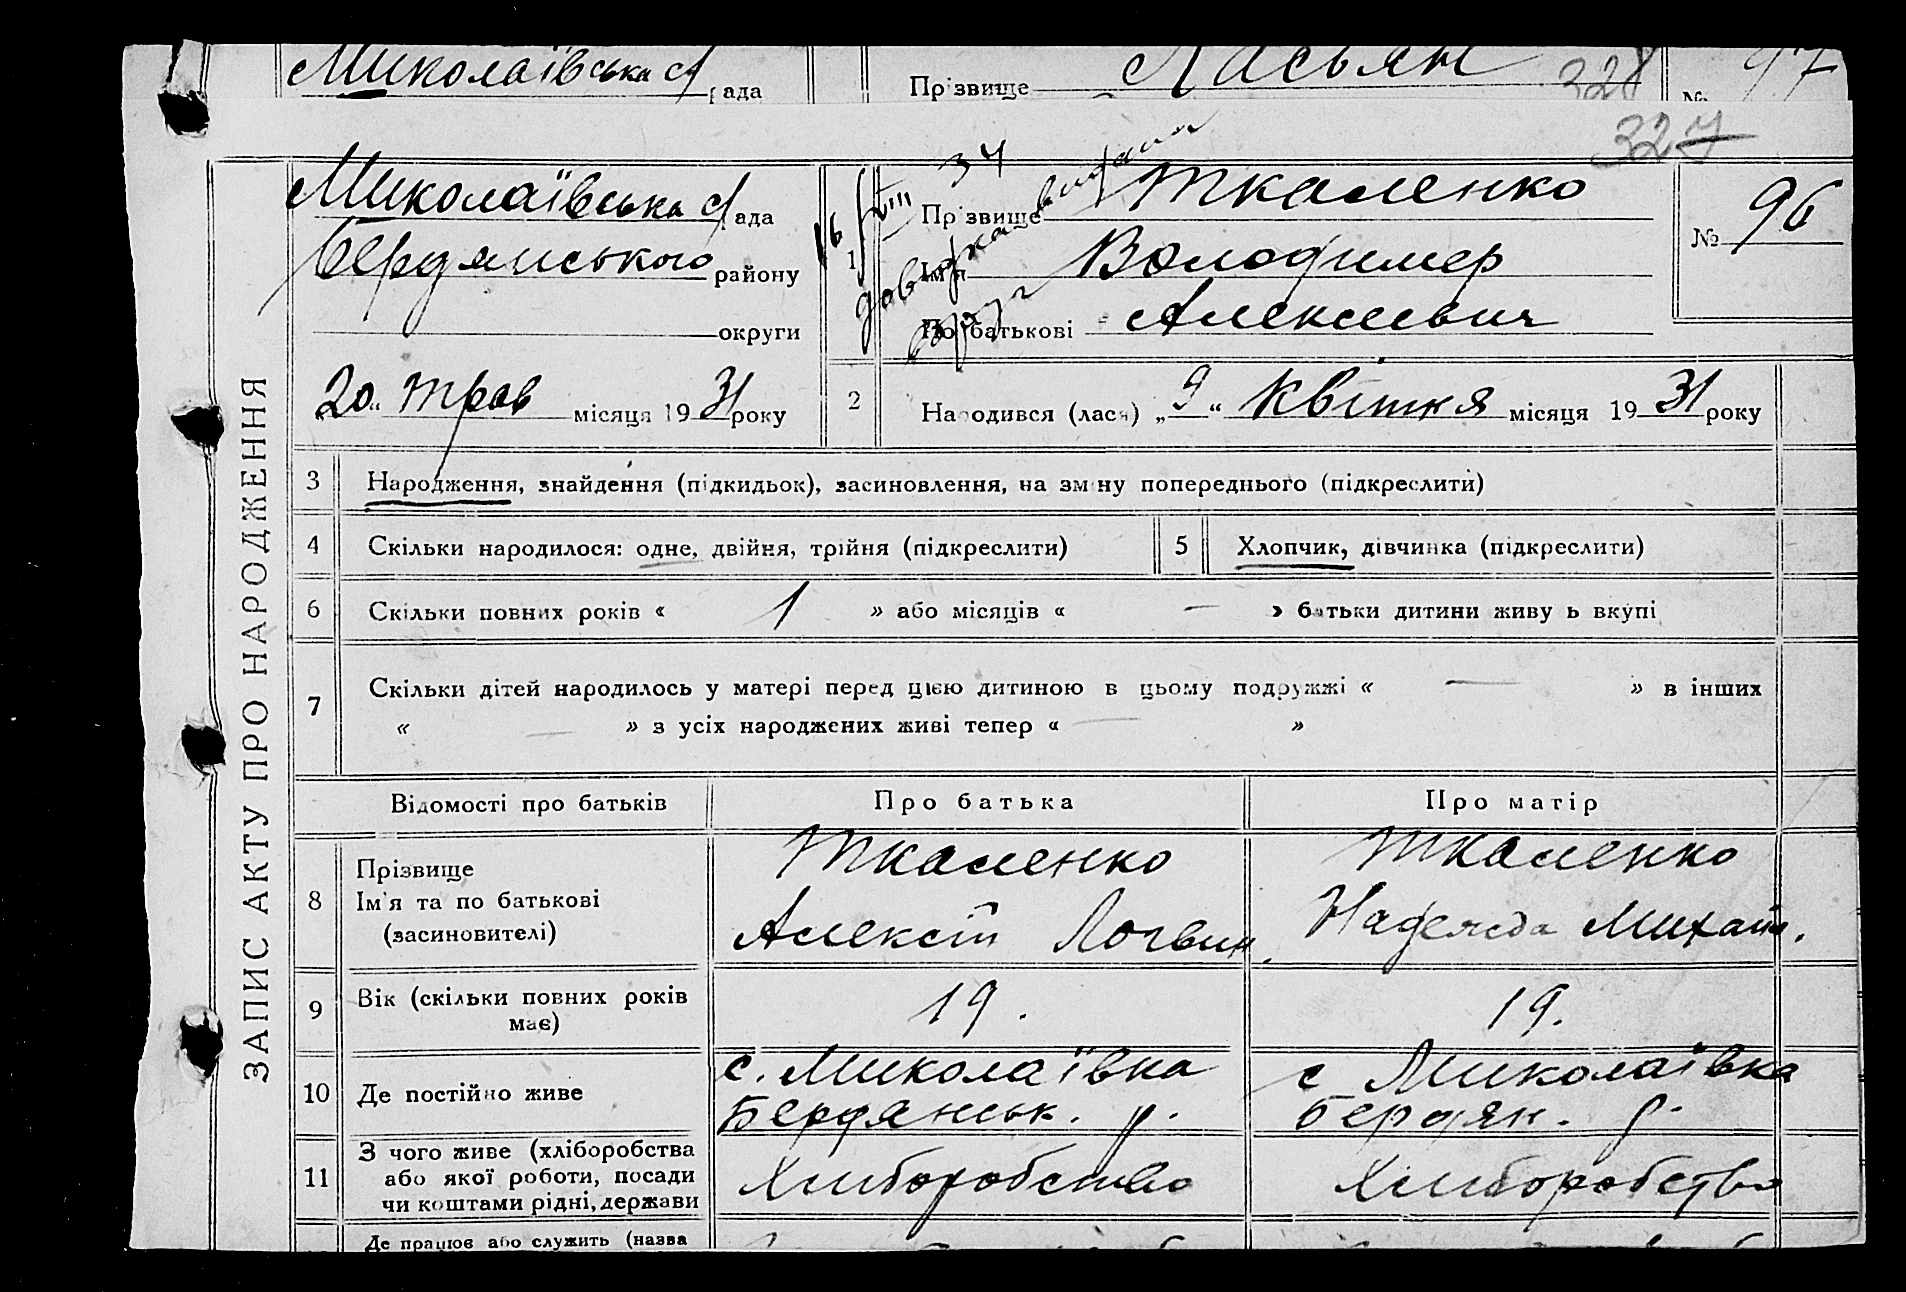 Миколаївська с/рада
Прізвище Касьян
328
№ 97
327
ЗАПИС АКТУ ПРО НАРОДЖЕННЯ
Миколаївська с/рада
Бердянського району
округи
„20“ трав місяця 1931 року
16/VIII 34
довідка видана
1
Прізвище Ткаленко
Ім'я Володимер
По батькові Алексеевич
№ 96
2
Народився (лася) „9“ квітня місяця 1931 року
3 Народження, знайдення (підкидьок), засиновлення, на зміну попереднього (підкреслити)
4 Скільки народилося: одне, двійня, трійня (підкреслити)
5 Хлопчик, дівчинка (підкреслити)
6 Скільки повних років « 1 » або місяців « — » батьки дитини живуть вкупі
7 Скільки дітей народилось у матері перед цією дитиною в цьому подружжі « — » в інших
« — » з усіх народжених живі тепер « — »
Відомості про батьків
Про батька
Про матір
8 Прізвище
Ім'я та по батькові
(засиновителі)
Ткаленко
Алексій Логвин.
Ткаленко
Надежда Михайл.
9 Вік (скільки повних років
має)
19.
19.
10 Де постійно живе
с. Миколаївка
Бердянськ. р.
с Миколаївка
Бердян. р.
11 З чого живе (хліборобства
або якої роботи, посади
чи коштами рідні, держави
Хліборобство
Хліборобство
Де працює або служить (назва